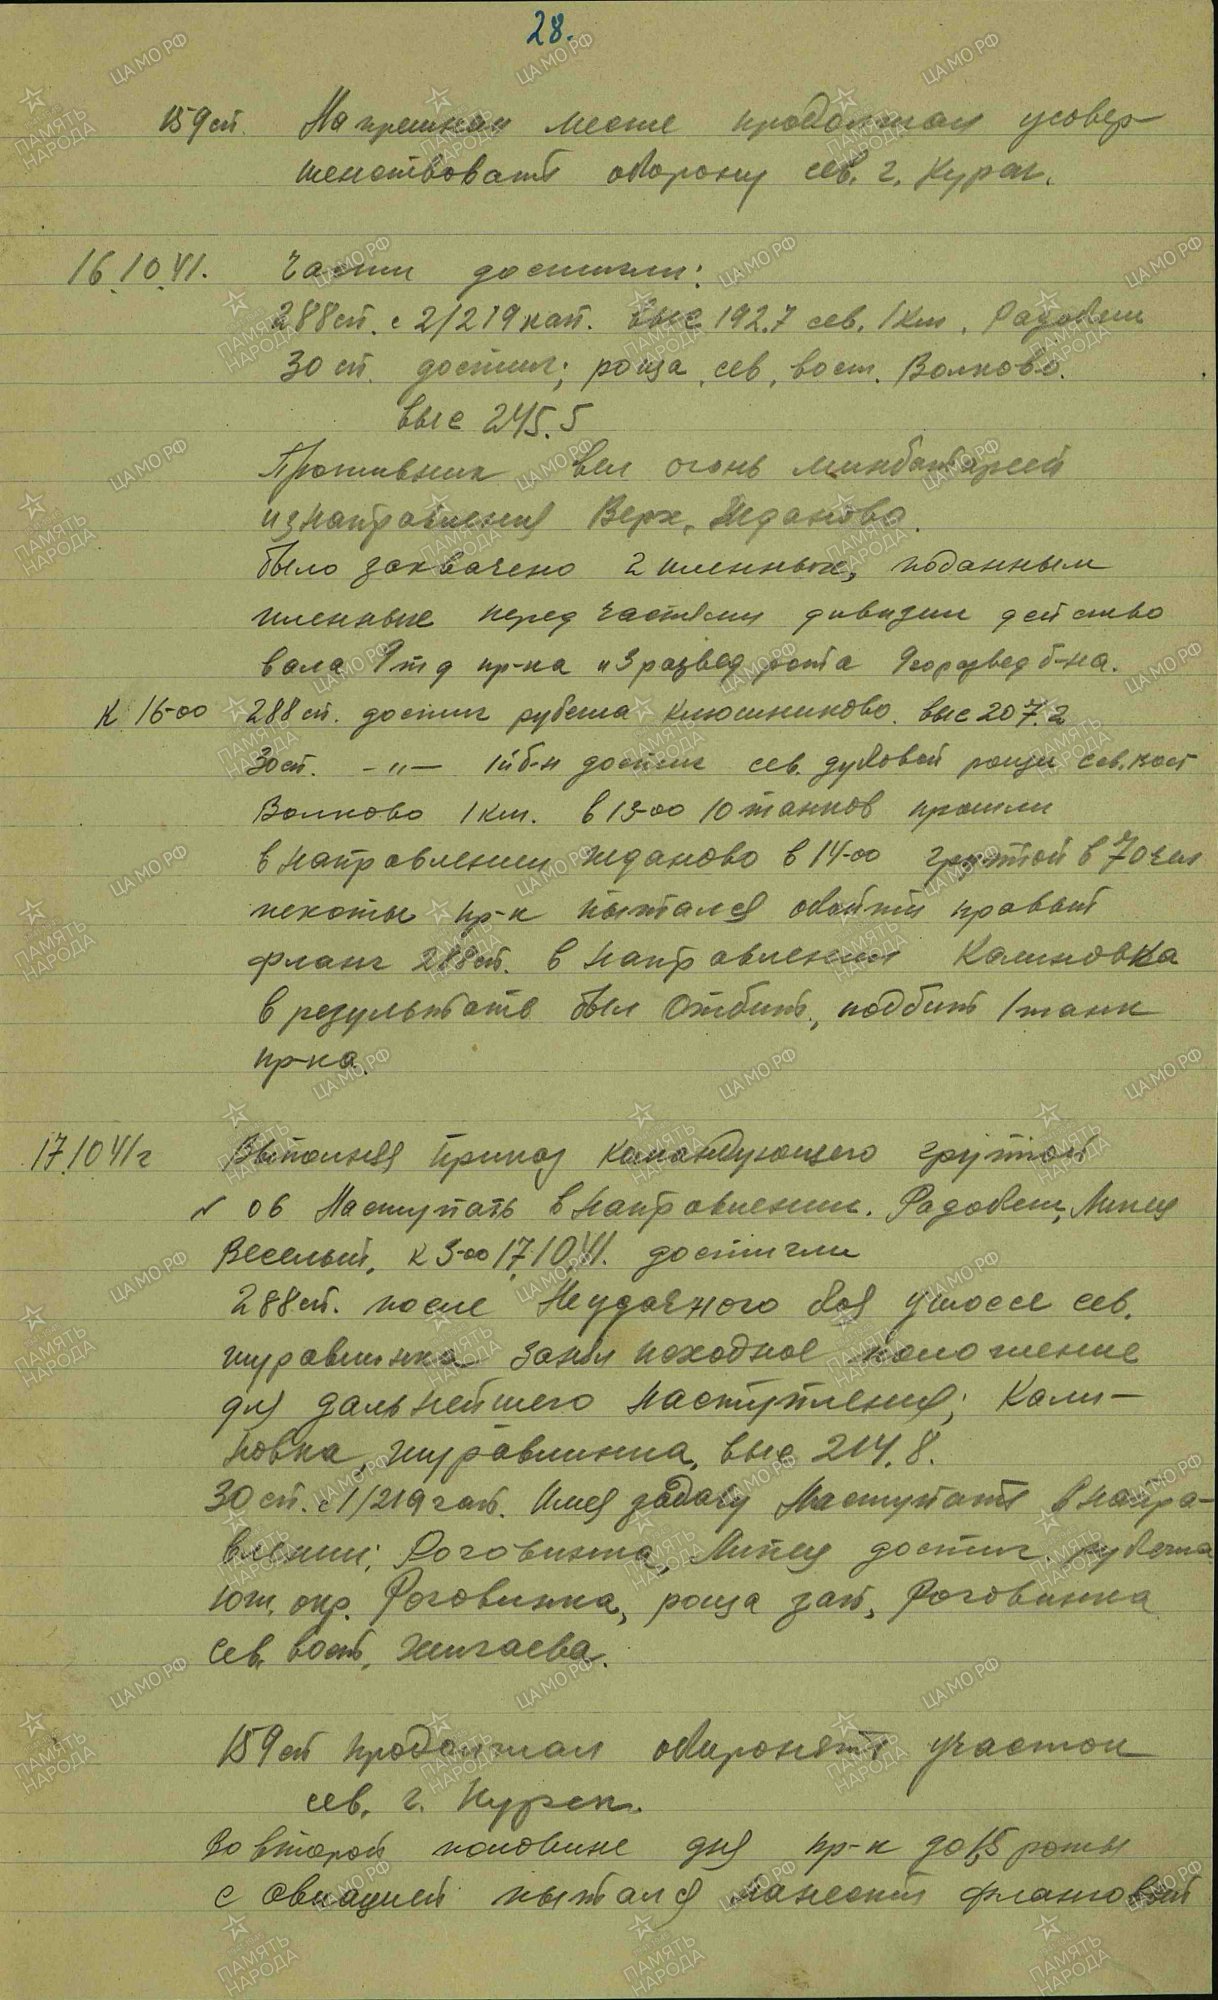 28.
159 сп. На прежнем месте продолжал усовер-
шенствовать оборону сев. г. Курск.
16.10.41. Части достигли:
288 сп. с 2/219 кап. выс 192.7 сев. 1 км. Радобеж
30 сп. достиг; роща сев. вост. Волково.
выс 245.5
Противник вел огонь минбатареей
из направления Верх. Жданово.
было захвачено 2 пленных, по данным
пленные перед частями дивизии действо
вала 9 тд пр-ка и 3 развед рота 9 го развед б-на.
К 16-00 288 сп. достиг рубежа Клюшниково. выс 207.2
30 сп. -"- 1й б-н достиг сев. дубовой рощи сев. вост
Волково 1 км. в 13-00 10 танков прошли
в направлении Жданово в 14-00 группой в 70 чел
пехоты пр-к пытался обойти правый
фланг 288 сп. в направлении Калиновка
в результате был отбит, подбит 1 танк
пр-ка.
17.10 41 г Выполняя приказ командующего группой
№ 06 Наступать в направлении. Радобеж, Липец
Веселый, к 3-00 17.10.41. достигли
288 сп. после Неудачного боя у шоссе сев.
журавлинка занял исходное положение
для дальнейшего наступления; Кали-
новка, журавлинка, выс 214.8.
30 сп. с 1/219 гап. Имея задачу Наступать в напра-
влении; Роговинка, Липец достиг рубежа
юж. окр. Роговинка, роща зап, Роговинка
Сев. вост. Жигаева.
159 сп продолжал оборонять участок
сев. г. Курск.
Во второй половине дня пр-к до 1,5 роты
с авиацией пытался нанести фланговый